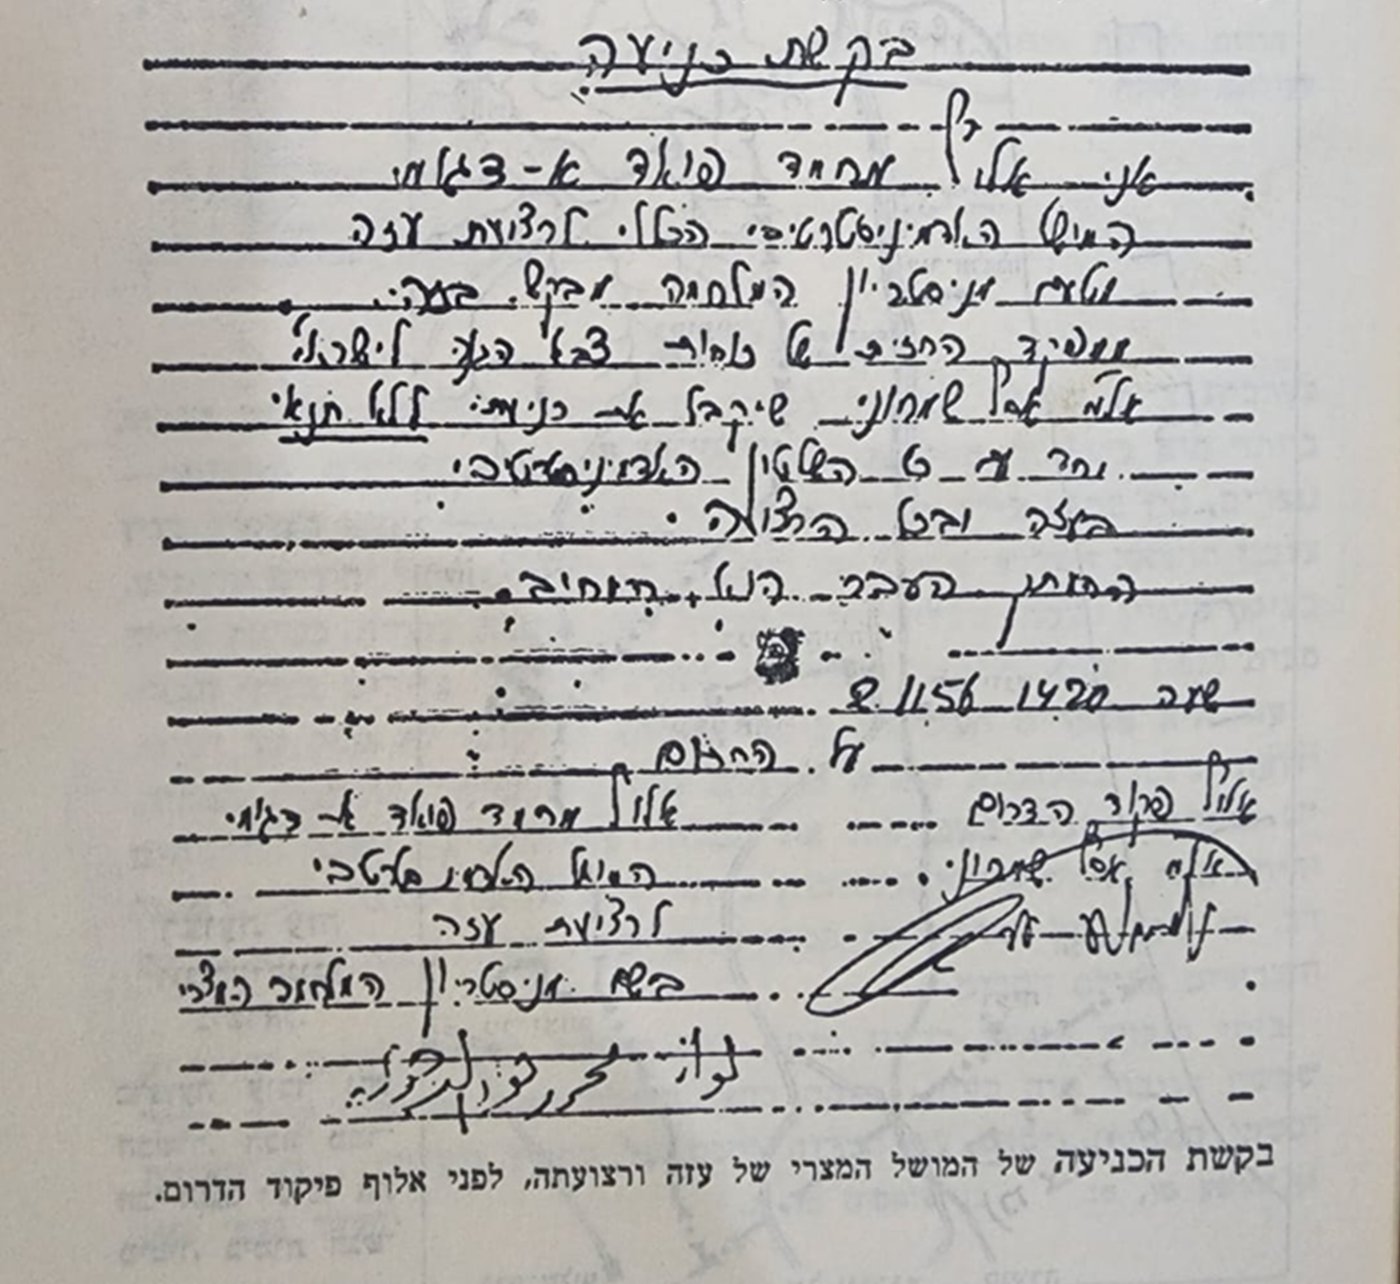 בקשת כניעה
אני אלוף מחמד פואד א-דגאוי
המושל האדמיניסטרטיבי הכללי לרצועת עזה
מטעם מניסטריון המלחמה מבקש בזה
ממפקד החזית של כוחות צבא הגנה לישראל
אל"מ אסף שמחוני שיקבל את כניעתי ללא תנאי
יחד עם כל השלטון האדמיניסטרטיבי
בעזה ובכל הרצועה
החותן העבר הנ"ל
שעה 1420 2.11.56
על החתום
אלוף פקוד הדרום אלוף מחמד פואד א-דגאוי
אל"מ אסף שמחוני המושל האדמיניסטרטיבי
לרצועת עזה
בשם מניסטריון המלחמה המצרי
בקשת הכניעה של המושל המצרי של עזה ורצועתה, לפני אלוף פיקוד הדרום.